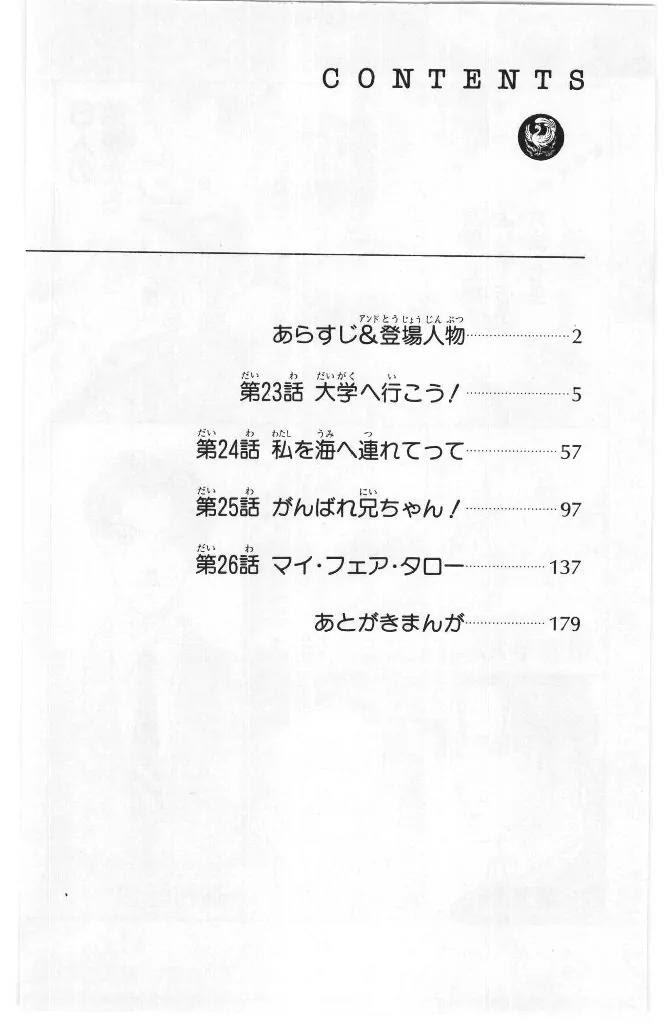 CONTENTS
あらすじ&登場人物……………………2
第23話 大学へ行こう!……………………5
第24話 私を海へ連れてって…………………57
第25話 がんばれ兄ちゃん!…………………97
第26話 マイ・フェア・タロー………………137
あとがきまんが………………179